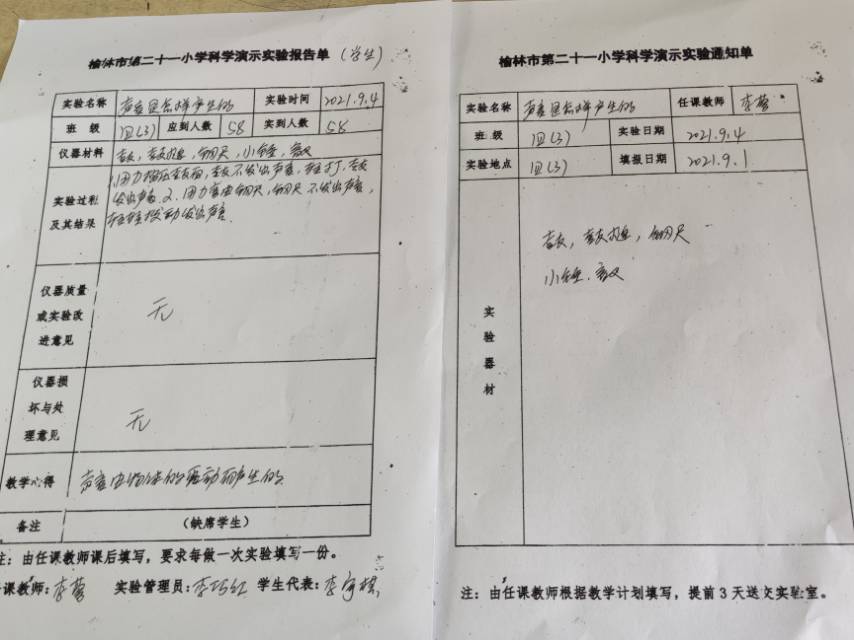 榆林市第二十一小学科学演示实验报告单（学生）
实验名称 声音是怎样产生的 实验时间 2021.9.4
班 级 四(3) 应到人数 58 实到人数 58
仪器材料 音叉,
实验过程
及其结果
1.用力按压鼓面,鼓不发出声音,轻打,鼓
发出声音.2.用力 钢尺,钢尺不发出声音,
轻轻拨动发出声音.
仪器质量
或实验改
进意见
无
仪器损
坏与处
理意见
无
教学心得 声音由物体的振动而产生的
备注 （缺席学生）
注：由任课教师课后填写，要求每做一次实验填写一份。
课教师：李 实验管理员：李巧红 学生代表：李
榆林市第二十一小学科学演示实验通知单
实验名称 声音是怎样产生的 任课教师 李
班 级 四(3) 实验日期 2021.9.4
实验地点 四(3) 填报日期 2021.9.1
实
验
器
材
钢尺
小锤.音叉
注：由任课教师根据教学计划填写，提前 3 天送交实验室。